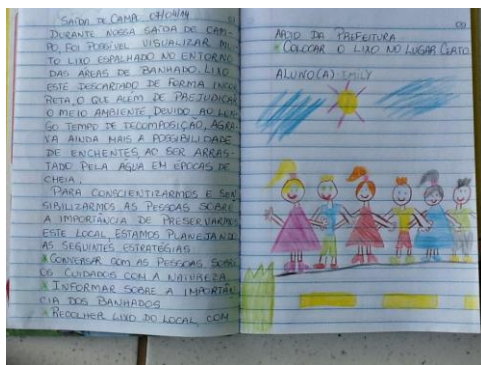 SAÍDA DE CAMPO 07/04/14
DURANTE NOSSA SAÍDA DE CAM-
PO, FOI POSSÍVEL VISUALIZAR MUI-
TO LIXO ESPALHADO NO ENTORNO
DAS ÁREAS DE BANHADO. LIXO
ESTE DESCARTADO DE FORMA INCOR
RETA, O QUE ALÉM DE PREJUDICAR
O MEIO AMBIENTE, DEVIDO AO LON-
GO TEMPO DE DECOMPOSIÇÃO, AGRA-
VA AINDA MAIS A POSSIBILIDADE
DE ENCHENTES, AO SER ARRAS-
TADO PELA ÁGUA EM ÉPOCAS DE
CHEIA.
PARA CONSCIENTIZARMOS E SEN
SIBILIZARMOS AS PESSOAS SOBRE
A IMPORTÂNCIA DE PRESERVARMOS
ESTE LOCAL, ESTAMOS PLANEJANDO
AS SEGUINTES ESTRATÉGIAS
* CONVERSAR COM AS PESSOAS SOBRE
OS CUIDADOS COM A NATUREZA
* INFORMAR SOBRE A IMPORTÂN
CIA DOS BANHADOS
* RECOLHER LIXO DO LOCAL, COM
APOIO DA PREFEITURA
* COLOCAR O LIXO NO LUGAR CERTO
ALUNO(A): IMILY